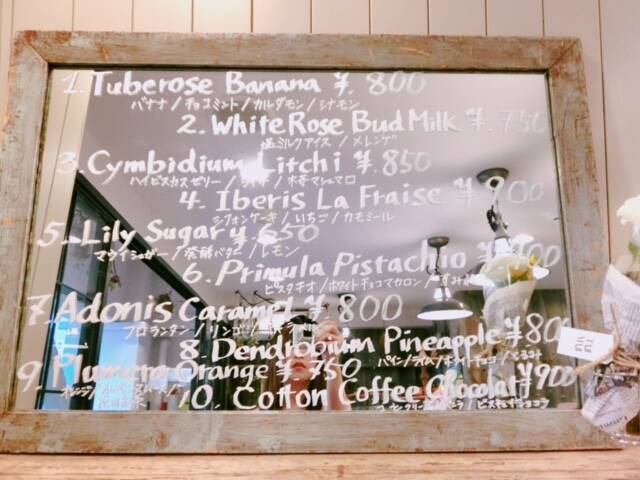 1. Tuberose Banana ¥. 800
バナナ/チョコミント/カルダモン/シナモン
2. White Rose Bud Milk ¥. 750
塩ミルクアイス/メレンゲ
3. Cymbidium Litchi ¥. 850
ハイビスカスゼリー/ライチ/木苺マシュマロ
4. Iberis La Fraise. ¥ 900
シフォンケーキ/いちご/カモミール
5. Lily Sugar ¥. 650
/発酵バター/レモン
6. Primula Pistachio ¥
ピスタチオ/ホワイトチョコマカロン/
7. Adonis Caramel ¥ 800
フロランタン/リンゴ/
8. Dendrobium Pineapple ¥ 800
パイン/ライス/ホワイトチョコ/
9. Plumera Orange ¥ 750
オレンジ/
10. Cotton Coffee Chocolat ¥900